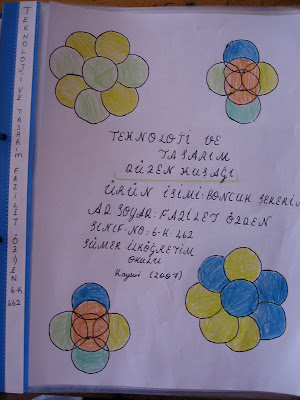 TEKNOLOJİ VE TASARIM FAZİLET ÖZDEN 6-K 462
TEKNOLOJİ VE
TASARIM
DÜZEN KUŞAĞI
ÜRÜN İSİMİ: BONCUK ŞEKERİM
AD SOYAD: FAZİLET ÖZDEN
SINIF-NO: 6-K-462
SÜMER İLKÖĞRETİM
OKULU
Kayseri (2007)